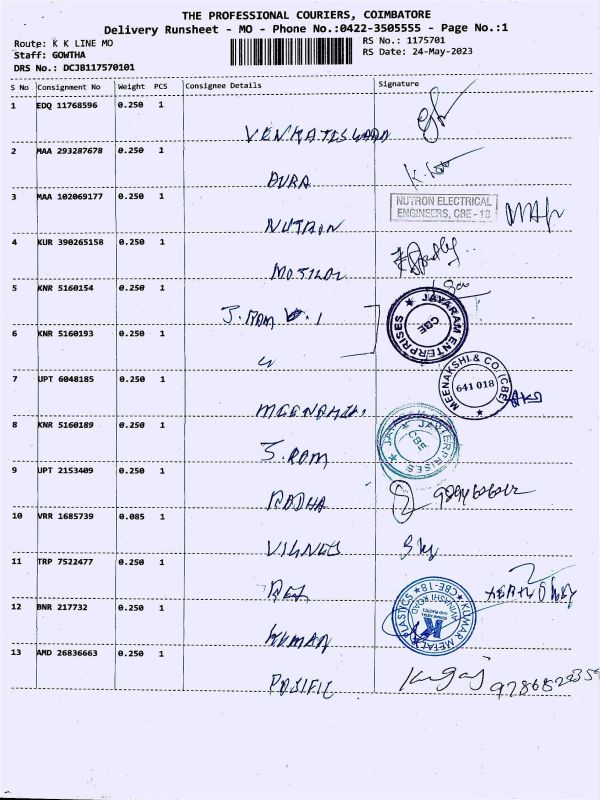 THE PROFESSIONAL COURIERS, COIMBATORE
Delivery Runsheet - MO - Phone No.:0422-3505555 - Page No.:1
Route: K K LINE MO
RS No.: 1175701
Staff: GOWTHA
RS Date: 24-May-2023
DRS No.: DCJB117570101
S No Consignment No Weight PCS Consignee Details Signature
1 EDQ 11768596 0.250 1
VENKATESWARA
2 MAA 293287678 0.250 1
DURA
3 MAA 102069177 0.250 1
NUTRON ELECTRICAL
ENGINEERS, CBE - 18
NUTRON
4 KUR 390265158 0.250 1
MOTILAL
5 KNR 5160154 0.250 1
J. RAM
JAYARAM ENTERPRISES
CBE
6 KNR 5160193 0.250 1
7 UPT 6048185 0.250 1
MEENAKSHI & CO. (CBE)
641 018
8 KNR 5160189 0.250 1
J. RAM
JAYARAM ENTERPRISES
CBE
9 UPT 2153409 0.250 1
RADHA
10 VRR 1685739 0.085 1
VIGNES
11 TRP 7522477 0.250 1
12 BNR 217732 0.250 1
KUMAR METAL PLASTICS
AVINASHI ROAD
CBE-18
KUMAR
13 AMD 26836663 0.250 1
PACIFIC